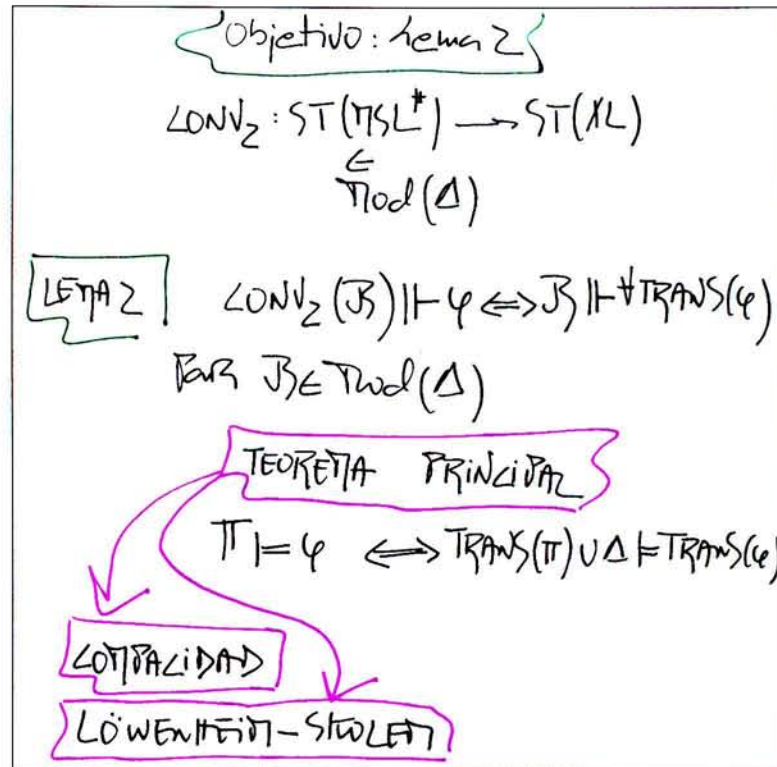 Objetivo: Lema 2
CONV₂ : ST(MSL*) → ST(XL)
∈
Mod(Δ)
LEMA 2 CONV₂(B) ⊩ φ ⇔ B ⊩ ∀TRANS(φ)
PARA B ∈ Mod(Δ)
TEOREMA PRINCIPAL
Π ⊨ φ ⇔ TRANS(Π) ∪ Δ ⊨ TRANS(φ)
COMPACIDAD
LÖWENHEIM-SKOLEM